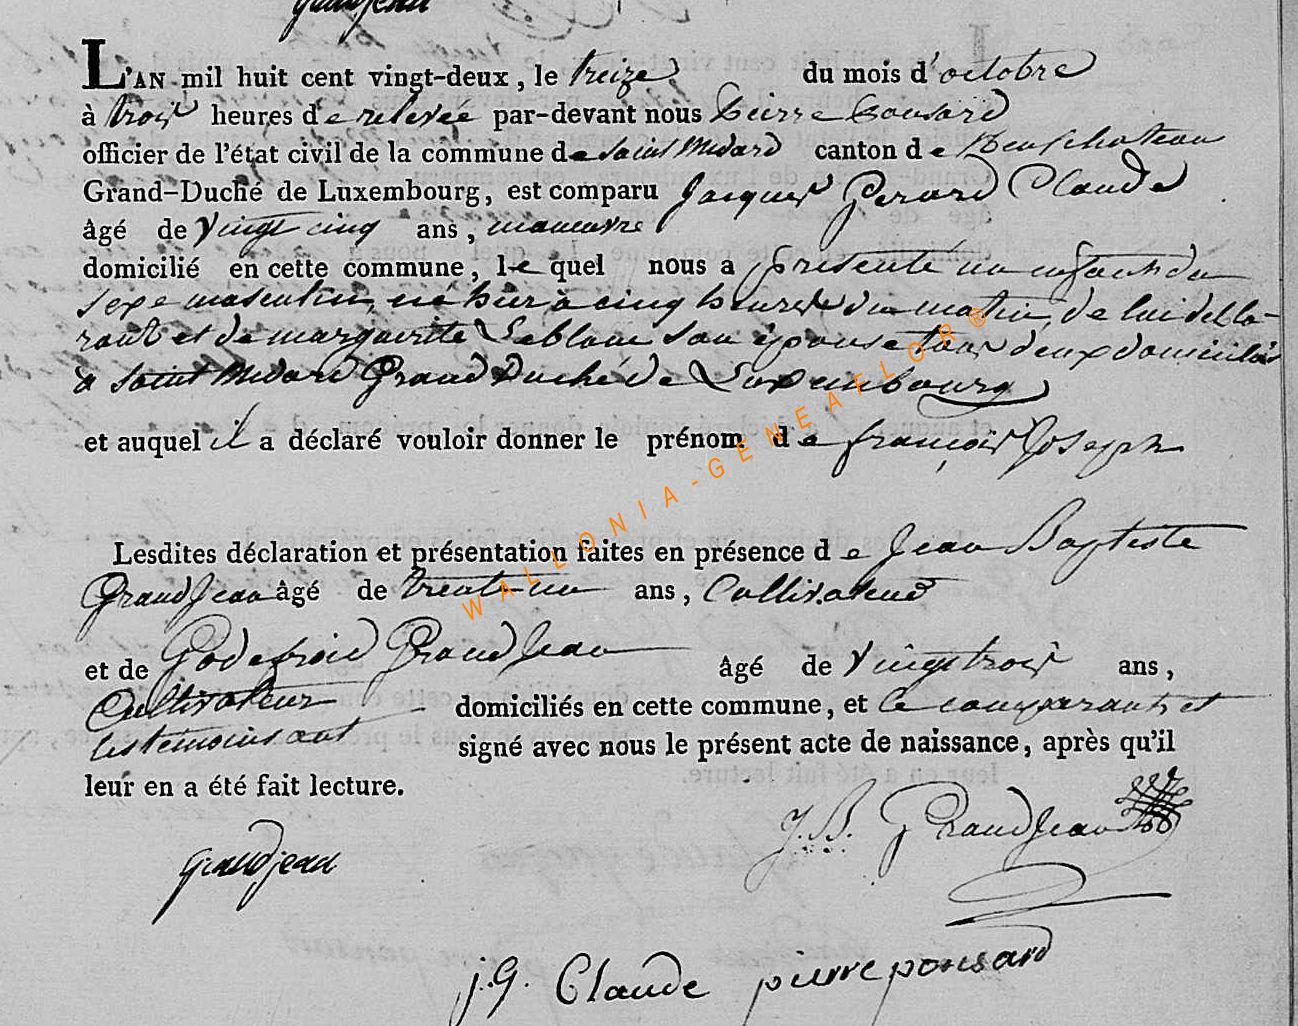 grandjean
L'AN mil huit cent vingt-deux, le treize du mois d'octobre
à trois heures de relevée par-devant nous Pierre Ponsard
officier de l'état civil de la commune de saint Medard canton de Neufchateau
Grand-Duché de Luxembourg, est comparu Jacques Gerard Claude
âgé de vingt cinq ans, manœuvre
domicilié en cette commune, le quel nous a presenté un enfant du
sexe masculin, né hier à cinq heures du matin, de lui décla-
rant et de marguerite Leblanc son épouse tous deux domiciliés
à saint Medard Grand Duché de Luxembourg
et auquel il a déclaré vouloir donner le prénom de françois Joseph
Lesdites déclaration et présentation faites en présence de Jean Baptiste
GrandJean âgé de trent-un ans, Cultivateur
et de Godefroid GrandJean âgé de vingt trois ans,
Cultivateur domiciliés en cette commune, et le comparant et
les temoins ont signé avec nous le présent acte de naissance, après qu'il
leur en a été fait lecture.
J. B. GrandJean
grandjean
j. g. Claude pierre ponsard
WALLONIA-GENEAFLOR®